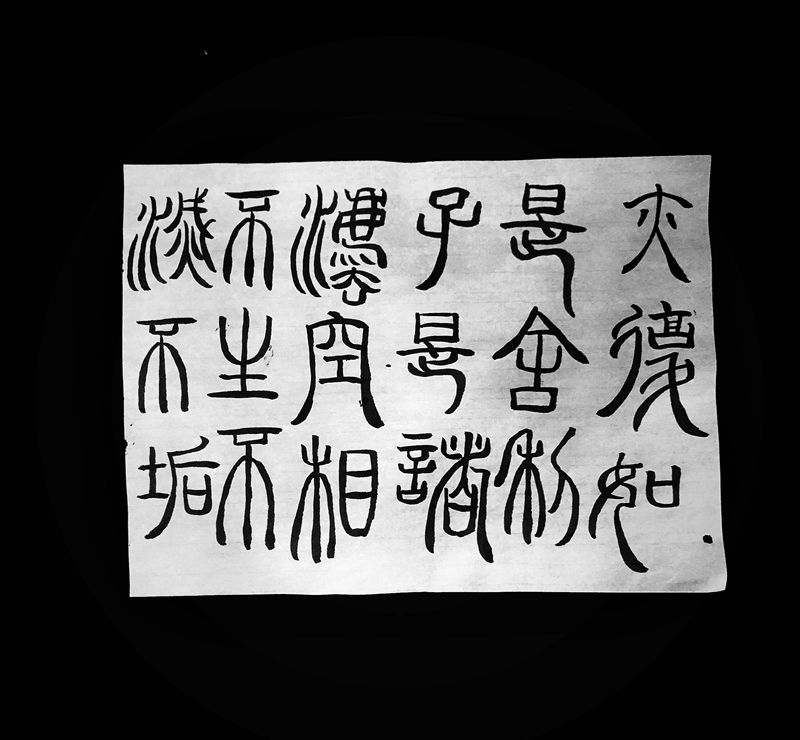 亦復如
是舍利
子是諸
灋空相
不生不
滅不垢